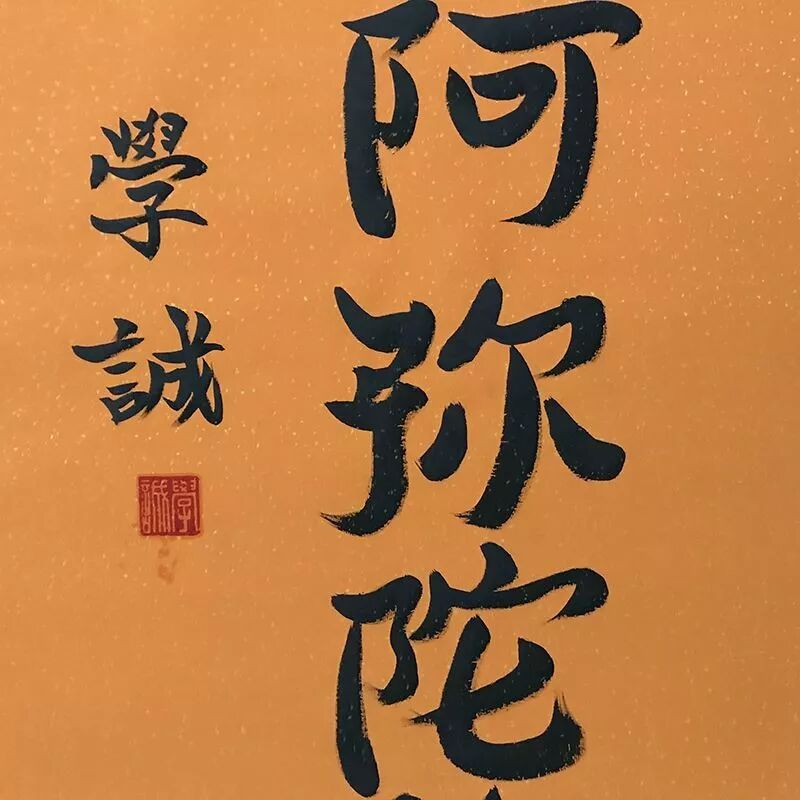 阿弥陀
學誠
學誠